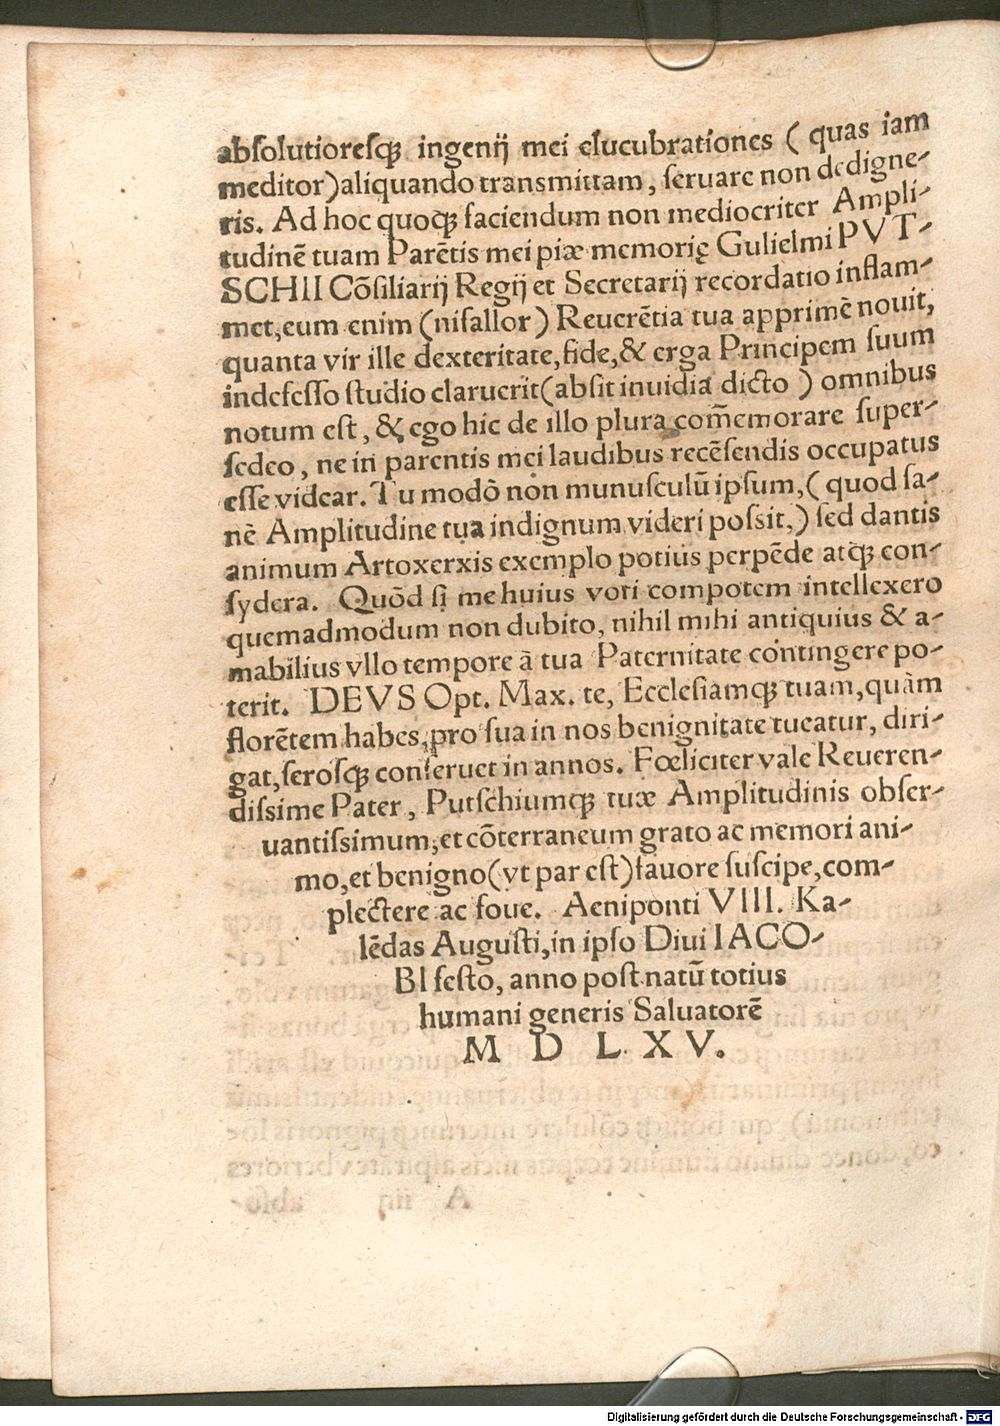 absolutioresq́ꝫ ingenij mei elucubrationes ( quas iam
meditor) aliquando transmittam, seruare non dedigne-
ris. Ad hoc quoq́ꝫ faciendum non mediocriter Ampli-
tudinē tuam Parētis mei piæ memorię Gulielmi PVT-
SCHII Cōsiliarij Regij et Secretarij recordatio inflam-
met, eum enim (nifallor) Reuerētia tua apprimè nouit,
quanta vir ille dexteritate, fide, & erga Principem suum
indefesso studio claruerit (absit inuidia dicto ) omnibus
notum est, & ego hic de illo plura com̄emorare super-
sedeo, ne in parentis mei laudibus recēsendis occupatus
esse videar. Tu modò non munusculū ipsum, ( quod sa-
nè Amplitudine tua indignum videri possit,) sed dantis
animum Artoxerxis exemplo potius perpēde atq́ꝫ con-
sydera. Quōd si me huius voti compotem intellexero
quemadmodum non dubito, nihil mihi antiquius & a-
mabilius vllo tempore à tua Paternitate contingere po-
terit. DEVS Opt. Max. te, Ecclesiamq́ꝫ tuam, quàm
florētem habes, pro sua in nos benignitate tueatur, diri-
gat, serosq́ꝫ conseruet in annos. Fœliciter vale Reueren-
dissime Pater, Putschiumq́ꝫ tuæ Amplitudinis obser-
uantissimum, et cōterraneum grato ac memori ani-
mo, et benigno (vt par est) fauore suscipe, com-
plectere ac foue. Aeniponti VIII. Ka-
lēdas Augusti, in ipso Diui IACO-
BI festo, anno post natū totius
humani generis Saluatorē
M D L X V.
Digitalisierung gefördert durch die Deutsche Forschungsgemeinschaft - DFG